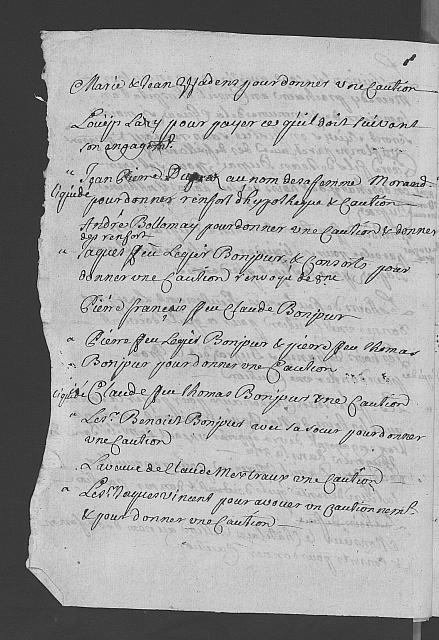 8
Marie & Jean Wadens pour donner une Caution
Louys Lasy pour payer ce qu'il doit suivant
son engagemt.
" Jean Pierre au nom de sa femme Morand
liquide pour donner renfort dhypotheque & Caution
André Bollomay pour donner une Caution & donner
des renfort
" Jaques ffeu Legier Bonjour & Consorts pour
donner une Caution renvoyé de
Pierre françois ffeu Claude Bonjour
" Pierre ffeu Legier Bonjour & pierre ffeu thomas
" Bonjour pour donner une Caution
liquidé Claude ffeu thomas Bonjour une Caution
" Le Sr. Benoist Bonjour avec sa soeur pour donner
une Caution
La veuve de Claude Mestraux une Caution
" Le Sr. Jaques Vincent pour avouer un Cautionnemt.
& pour donner une Caution